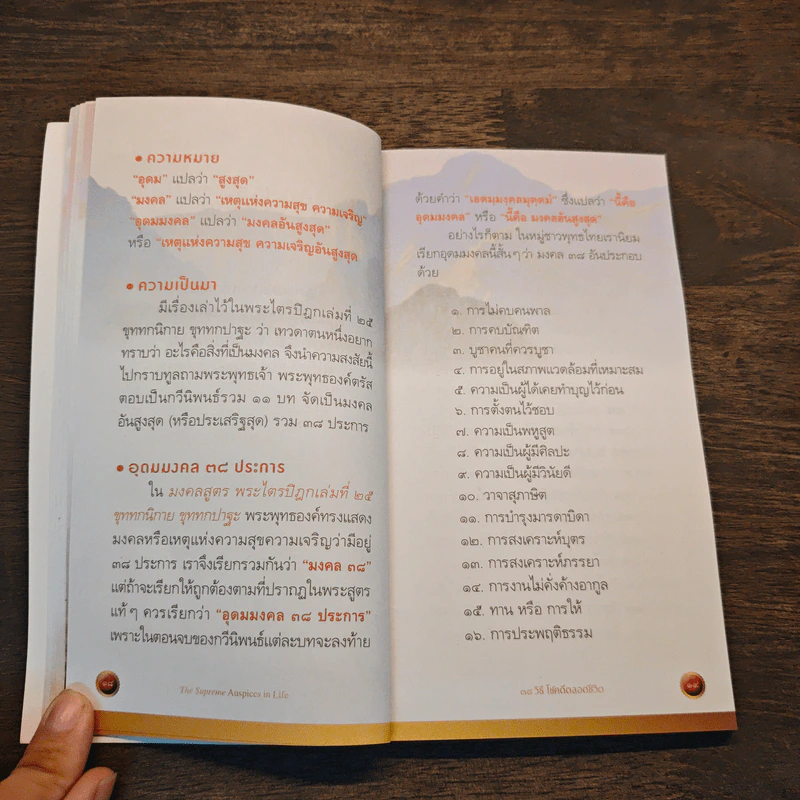 • ความหมาย
“อุดม” แปลว่า “สูงสุด”
“มงคล” แปลว่า “เหตุแห่งความสุข ความเจริญ”
“อุดมมงคล” แปลว่า “มงคลอันสูงสุด”
หรือ “เหตุแห่งความสุข ความเจริญอันสูงสุด
• ความเป็นมา
มีเรื่องเล่าไว้ในพระไตรปิฎกเล่มที่ ๒๕
ขุททกนิกาย ขุททกปาฐะ ว่า เทวดาตนหนึ่งอยาก
ทราบว่า อะไรคือสิ่งที่เป็นมงคล จึงนำความสงสัยนี้
ไปกราบทูลถามพระพุทธเจ้า พระพุทธองค์ตรัส
ตอบเป็นกวีนิพนธ์รวม ๑๑ บท จัดเป็นมงคล
อันสูงสุด (หรือประเสริฐสุด) รวม ๓๘ ประการ
• อุดมมงคล ๓๘ ประการ
ใน มงคลสูตร พระไตรปิฎกเล่มที่ ๒๕
ขุททกนิกาย ขุททกปาฐะ พระพุทธองค์ทรงแสดง
มงคลหรือเหตุแห่งความสุขความเจริญว่ามีอยู่
๓๘ ประการ เราจึงเรียกรวมกันว่า “มงคล ๓๘”
แต่ถ้าจะเรียกให้ถูกต้องตามที่ปรากฏในพระสูตร
แท้ๆ ควรเรียกว่า “อุดมมงคล ๓๘ ประการ”
เพราะในตอนจบของกวีนิพนธ์แต่ละบทจะลงท้าย
๑๘
The Supreme Auspices in Life
ด้วยคำว่า “เอตมฺมงฺคลมุตฺตมํ” ซึ่งแปลว่า “นี้คือ
อุดมมงคล” หรือ “นี้คือ มงคลอันสูงสุด”
อย่างไรก็ตาม ในหมู่ชาวพุทธไทยเรานิยม
เรียกอุดมมงคลนี้สั้นๆ ว่า มงคล ๓๘ อันประกอบ
ด้วย
๑. การไม่คบคนพาล
๒. การคบบัณฑิต
๓. บูชาคนที่ควรบูชา
๔. การอยู่ในสภาพแวดล้อมที่เหมาะสม
๕. ความเป็นผู้ได้เคยทำบุญไว้ก่อน
๖. การตั้งตนไว้ชอบ
๗. ความเป็นพหูสูต
๘. ความเป็นผู้มีศิลปะ
๙. ความเป็นผู้มีวินัยดี
๑๐. วาจาสุภาษิต
๑๑. การบำรุงมารดาบิดา
๑๒. การสงเคราะห์บุตร
๑๓. การสงเคราะห์ภรรยา
๑๔. การงานไม่คั่งค้างอากูล
๑๕. ทาน หรือ การให้
๑๖. การประพฤติธรรม
๓๘ วิธี โชคดีตลอดชีวิต
๑๙